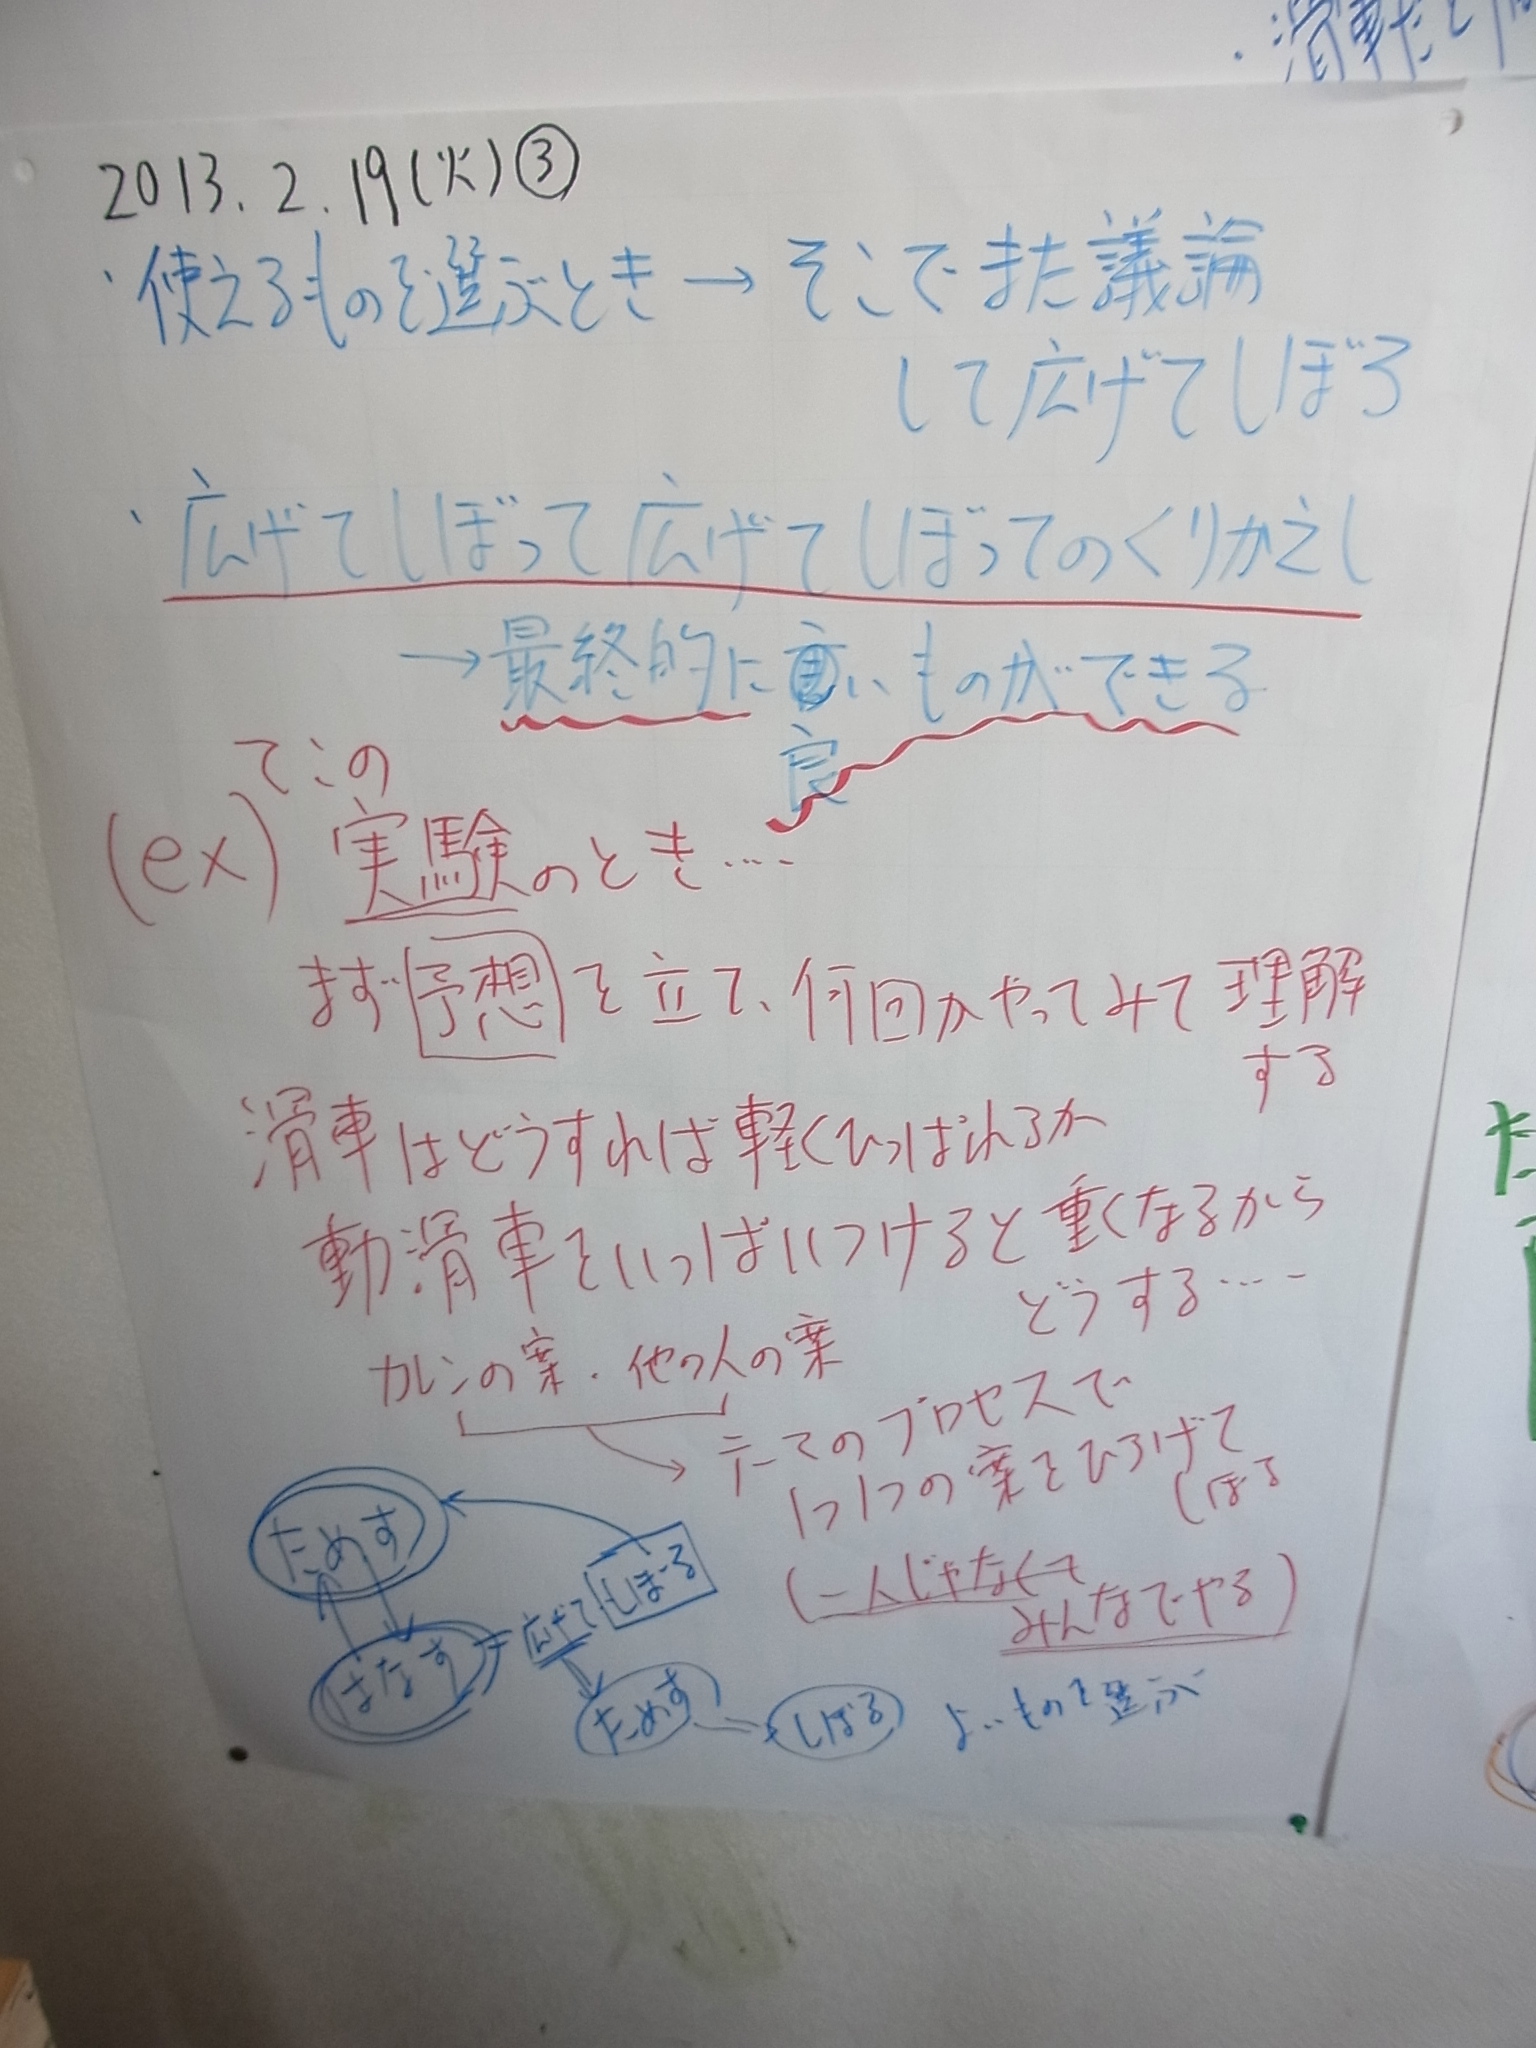 ・滑車だと
2013.2.19(火)③
・使えるものを選ぶとき→そこでまた議論
して広げてしぼろ
・広げてしぼって広げてしぼってのくりかえし
→最終的に いものができる
良
てこの
(ex) 実験のとき….
まず予想を立て、何回かやってみて理解
する
滑車はどうすれば軽くひっぱれるか
動滑車をいっぱいつけると重くなるから
どうする….
カレンの案・他の人の案
テーマのプロセスで
1つ1つの案をひろげて
しぼる
(一人じゃなくて
みんなでやる)
ためす
はなす
広げて
しぼる
ためす
しぼる
よいものを選ぶ